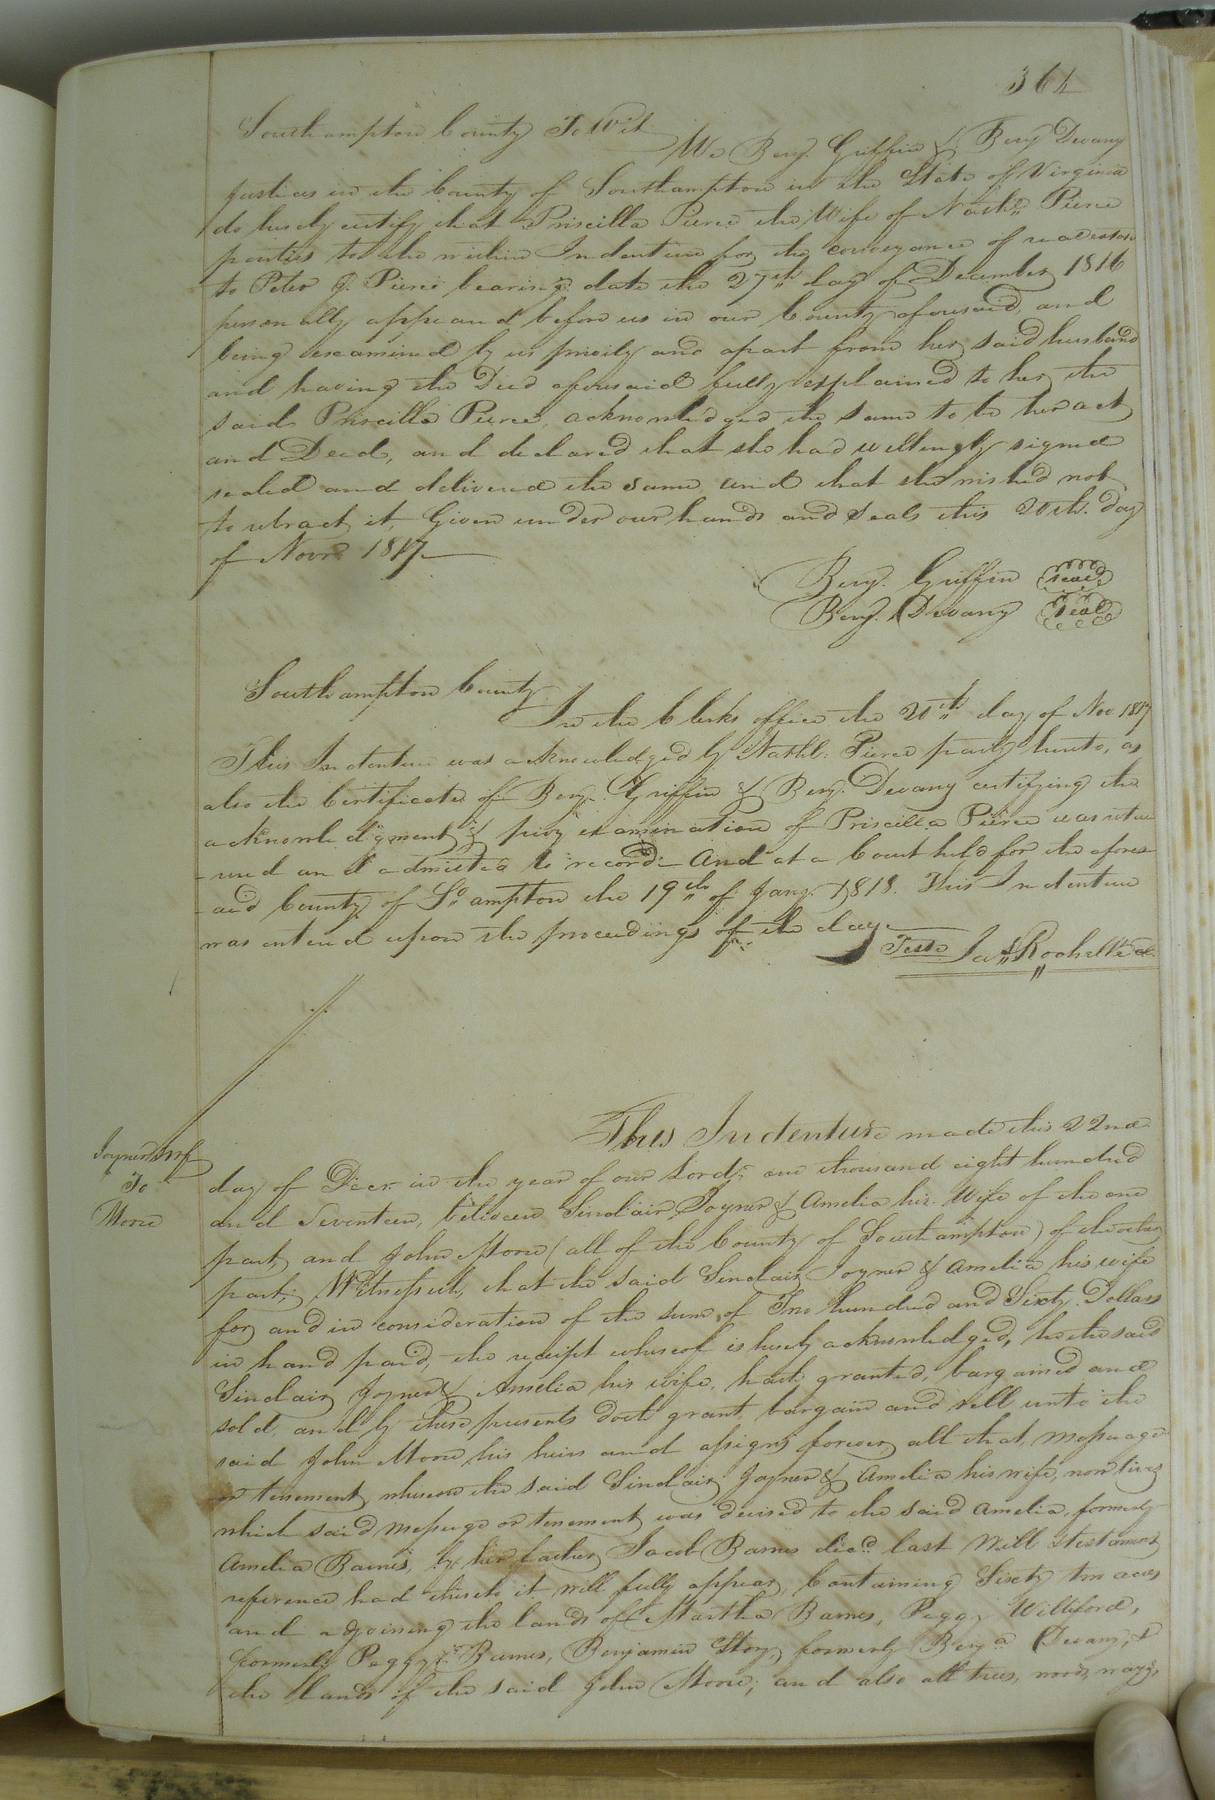 364
Southampton County To Wit
We Benj. Griffin & Benj Devany
Justices in the County of Southampton in the State of Virginia
do hereby certify that Priscilla Pierce the Wife of Nathl. Pierce
parties to the within Indenture for the conveyance of real estate
to Peter J. Pierce bearing date the 27th day of December 1816
personally appeared before us in our County aforesaid, and
being examined by us privily and apart from her said husband
and having the Deed aforesaid fully explained to her, the
said Priscilla Pierce, acknowledged the same to be her act
and Deed, and declared that she had willingly signed
sealed and delivered the same and that she wished not
to retract it, Given under our hands and seals this 20th. day
of Novr. 1817
Benj. Griffin seal
Benj. Devany seal
Southampton County
In the Clerks office the 20th day of Nov 1817
This Indenture was acknowledged by Nathl. Pierce party hereto, as
also the Certificate of Benj. Griffin & Benj. Devany certifying the
acknowledgment & privy examination of Priscilla Pierce was retur
-ned and admitted to record And at a Court held for the afores
-aid County of So.ampton the 19th of Jany. 1818. This Indenture
was entered upon the proceedings of the day.
Teste Jas Rochelle
Joyner & wf
To
Moore
This Indenture made this 22nd
day of Decr. in the year of our Lord, one thousand eight hundred
and Seventeen, between Sinclair Joyner & Amelia his Wife of the one
part and John Moore (all of the County of Southampton) of the other
part, Witnesseth, that the said Sinclair Joyner & Amelia his wife
for and in consideration of the sum of Two hundred and Sixty Dollars
in hand paid, the receipt whereof is hereby acknowledged, he the said
Sinclair Joyner & Amelia his wife, hath granted, bargained and
sold, and by these presents doth grant bargain and sell unto the
said John Moore his heirs and assigns forever, all that messuage
or tenement whereon the said Sinclair Joyner & Amelia his wife, now lives
which said messuage or tenement was devised to the said Amelia, formerly
Amelia Barnes, by her father Jacob Barnes decd. last Will & testament
reference had thereto it will fully appear, Containing Sixty two acres
and adjoining the lands of Martha Barnes, Peggy Williford,
formerly Peggy Barnes, Benjamin Story, formerly Benja Devany, &
the lands of the said John Moore; and also all trees, woods, ways,